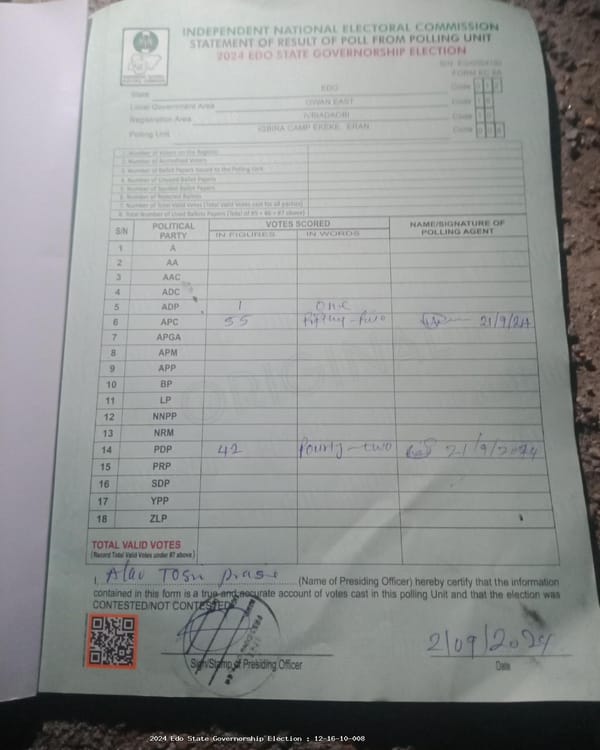 INDEPENDENT NATIONAL ELECTORAL COMMISSION
STATEMENT OF RESULT OF POLL FROM POLLING UNIT
2024 EDO STATE GOVERNORSHIP ELECTION
FORM EC 8A
State EDO Code
Local Government Area OWAN EAST Code
Registration Area IVBIADAOBI Code
Polling Unit IGBIRA CAMP EKEKE, ERAN Code
1. Number of Voters on the Register
2. Number of Accredited Voters
3. Number of Ballot Papers Issued to the Polling Unit
4. Number of Unused Ballot Papers
5. Number of Spoiled Ballot Papers
6. Number of Rejected Ballots
7. Number of Total Valid Votes (Total Valid Votes cast for all parties)
8. Total Number of Used Ballots Papers (Total of #5 + #6 + #7 above)
S/N POLITICAL PARTY VOTES SCORED NAME/SIGNATURE OF POLLING AGENT
IN FIGURES IN WORDS
1 A
2 AA
3 AAC
4 ADC
5 ADP 1 One
6 APC 55 Fifty-five 21/9/24
7 APGA
8 APM
9 APP
10 BP
11 LP
12 NNPP
13 NRM
14 PDP 42 Fourty-two 21/9/2024
15 PRP
16 SDP
17 YPP
18 ZLP
TOTAL VALID VOTES
(Record Total Valid Votes under #7 above)
I, Alao Tosin (Name of Presiding Officer) hereby certify that the information
contained in this form is a true and accurate account of votes cast in this polling Unit and that the election was
CONTESTED/NOT CONTESTED
2/09/2024
Sign/Stamp of Presiding Officer Date
2024 Edo State Governorship Election : 12-16-10-008